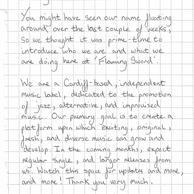 You might have seen our name floating
around over the last couple of weeks,
so we thought it was prime-time to
introduce who we are and what we
are doing here at 'Flaming Sword'.
We are a Cardiff-based, independent
music label, dedicated to the promotion
of jazz, alternative, and improvised
music. Our primary goal is to create a
platform upon which existing, original,
fresh, and diverse music can grow and
develop. In the coming months, expect
regular single, and longer releases from
us. Watch this space for updates and more,
and more! Thank you very much.